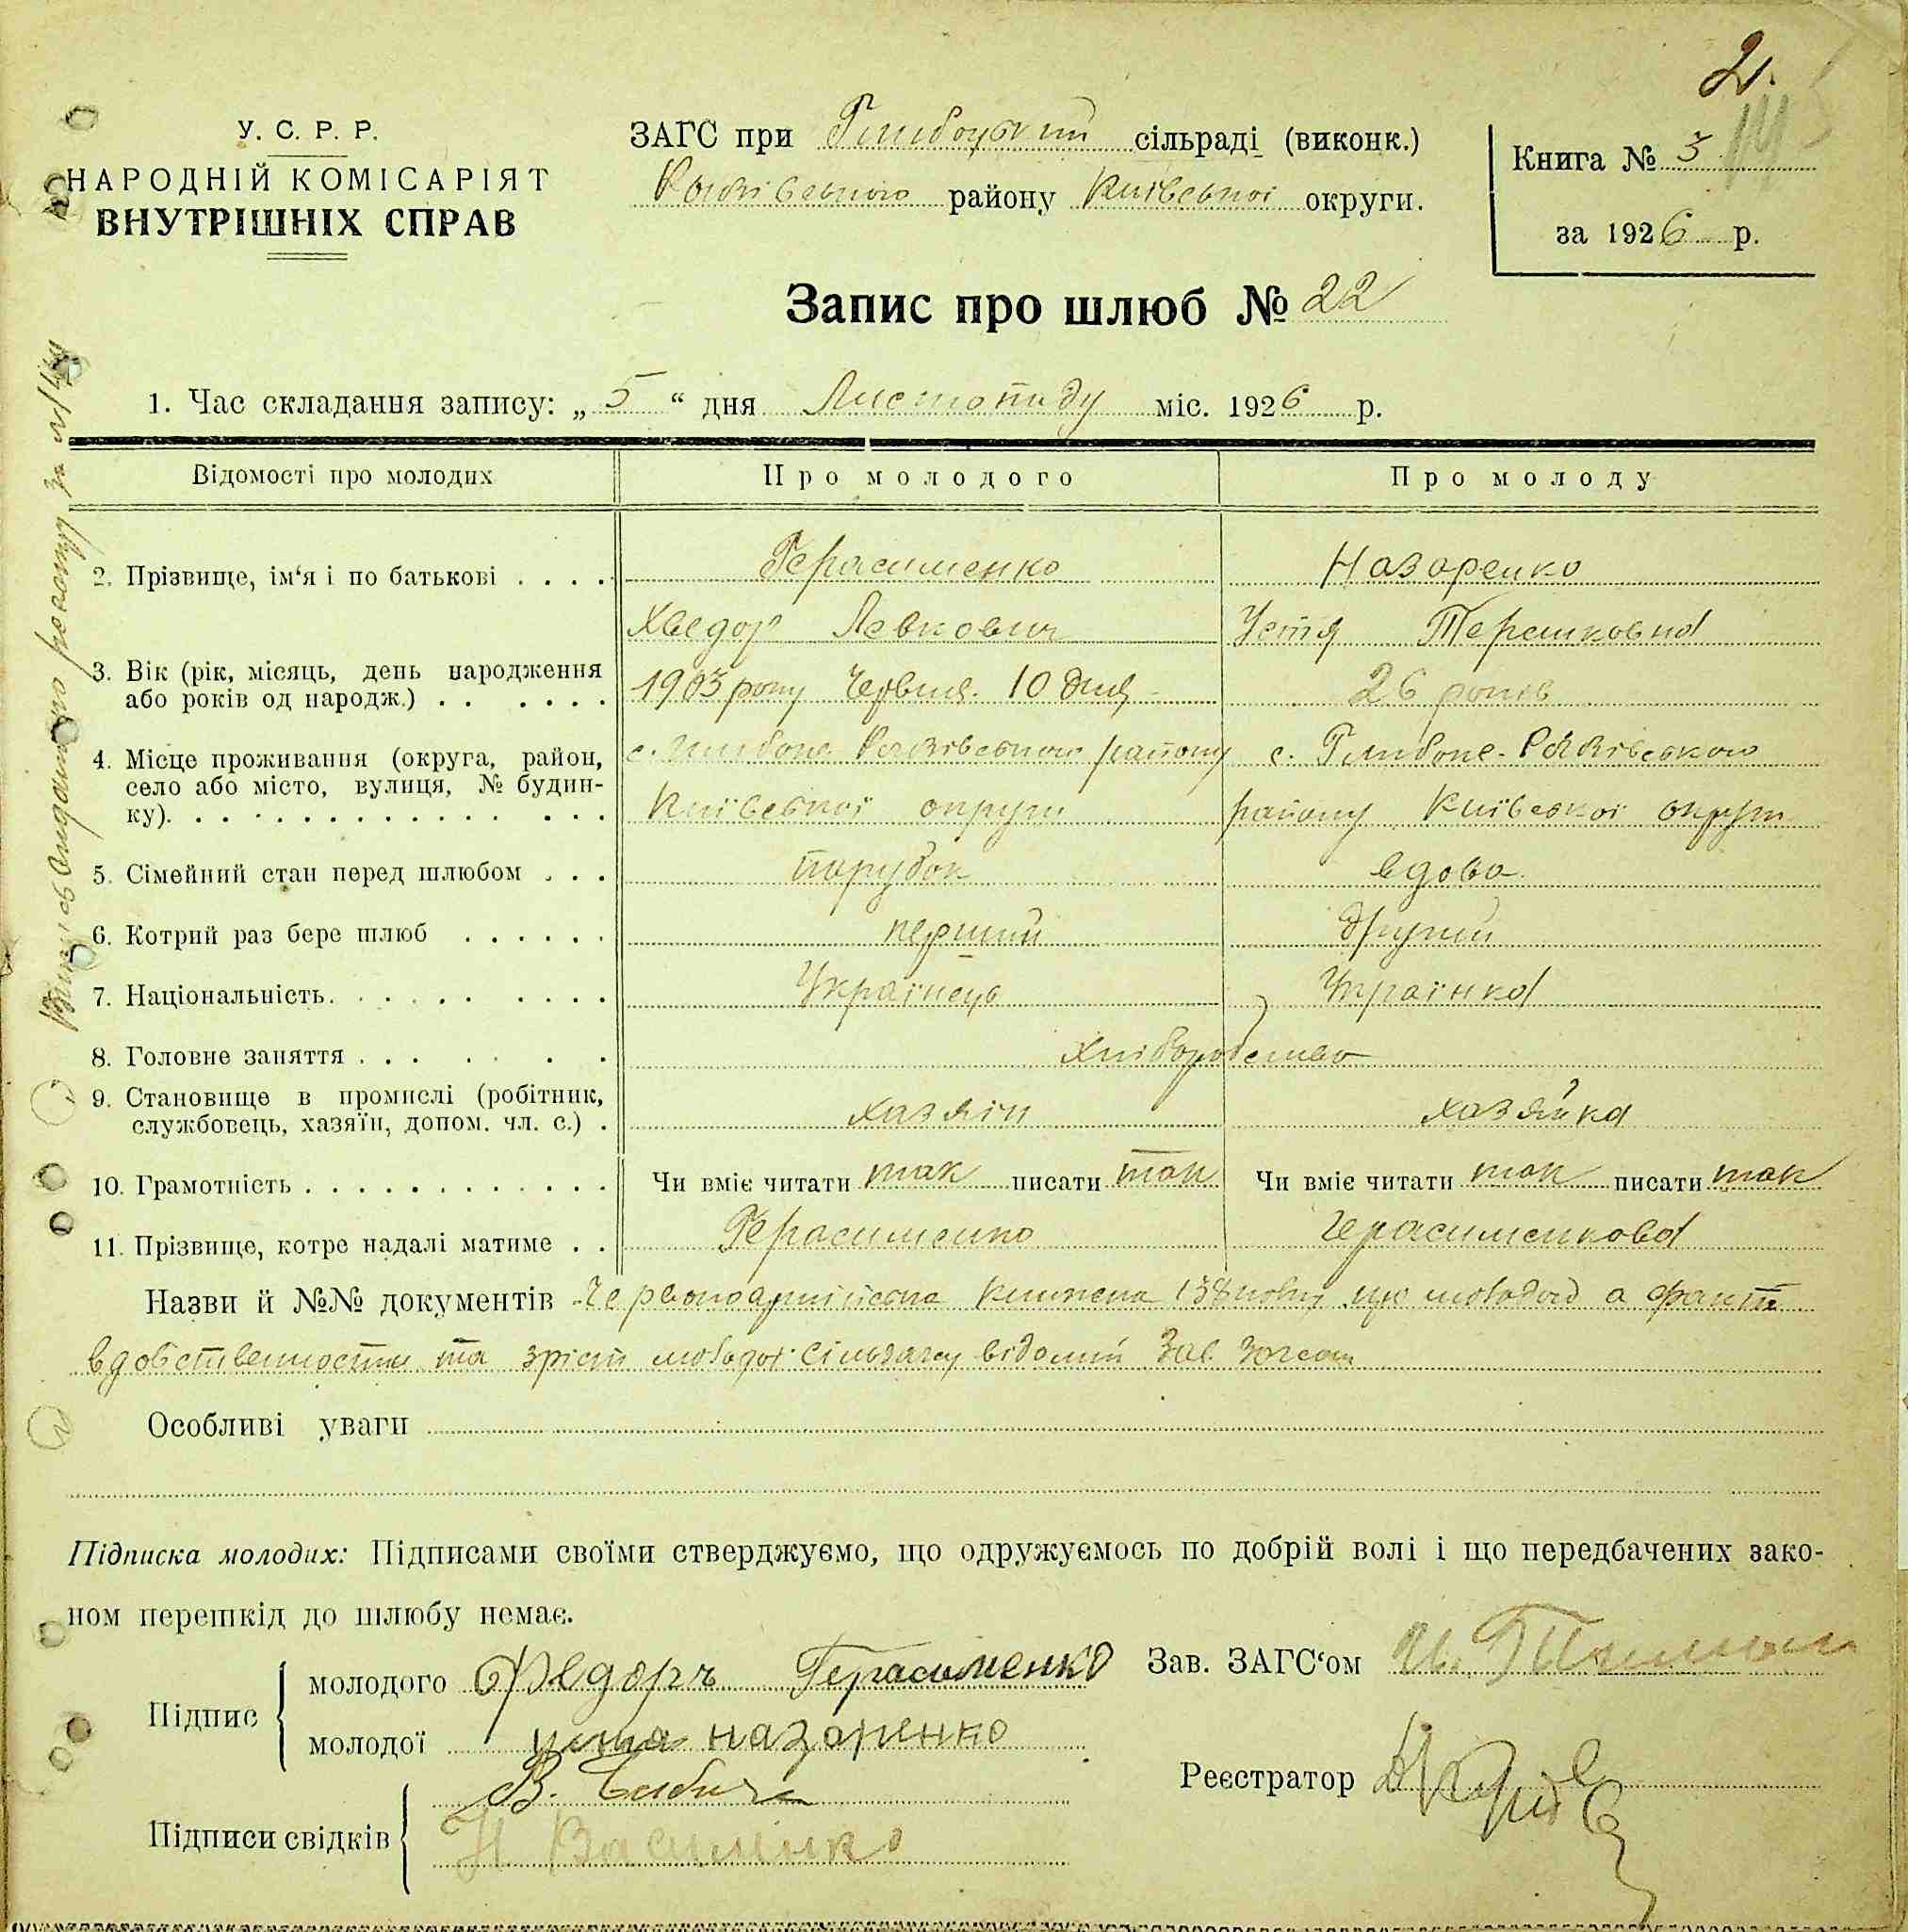 2.
У. С. Р. Р.
НАРОДНІЙ КОМІСАРІЯТ
ВНУТРІШНІХ СПРАВ
ЗАГС при Глибоцькій сільраді (виконк.)
району Київської округи.
Книга № 3
за 1926 р.
Запис про шлюб № 22
1. Час складання запису: „ 5 “ дня Листопаду міс. 1926 р.
Відомості про молодих Про молодого Про молоду
2. Прізвище, ім‘я і по батькові . . . . Герасименко Назаренко
Хведор Левкович Устя Терешковна
3. Вік (рік, місяць, день народження
або років од народж.) . . . . . . 1903 року Червня 10 дня 26 років
4. Місце проживання (округа, район, с. Глибоке району с. Глибоке
село або місто, вулиця, № будин-
ку). . . . . . . . . . . . . . . . Київської округи району Київської округи
5. Сімейний стан перед шлюбом . . . парубок вдова
6. Котрий раз бере шлюб . . . . . . перший другий
7. Національність. . . . . . . . . . Українець Українка
8. Головне заняття . . . . . . . Хліборобство
9. Становище в промислі (робітник,
службовець, хазяїн, допом. чл. с.) . хазяїн хазяйка
10. Грамотність . . . . . . . . . . . . Чи вміє читати так писати так Чи вміє читати так писати так
11. Прізвище, котре надалі матиме . . Герасименко Герасименкова
Назви й №№ документів Червоноармійська книжка а факт
та зріст молодої відомий Зав. Загсом
Особливі уваги
Підписка молодих: Підписами своїми стверджуємо, що одружуємось по добрій волі і що передбачених зако-
ном перешкід до шлюбу немає.
Підпис
молодого Федоръ Герасименко
молодої устя назаренко
Зав. ЗАГС‘ом
Реєстратор
Підписи свідків
В.
Н Василенко